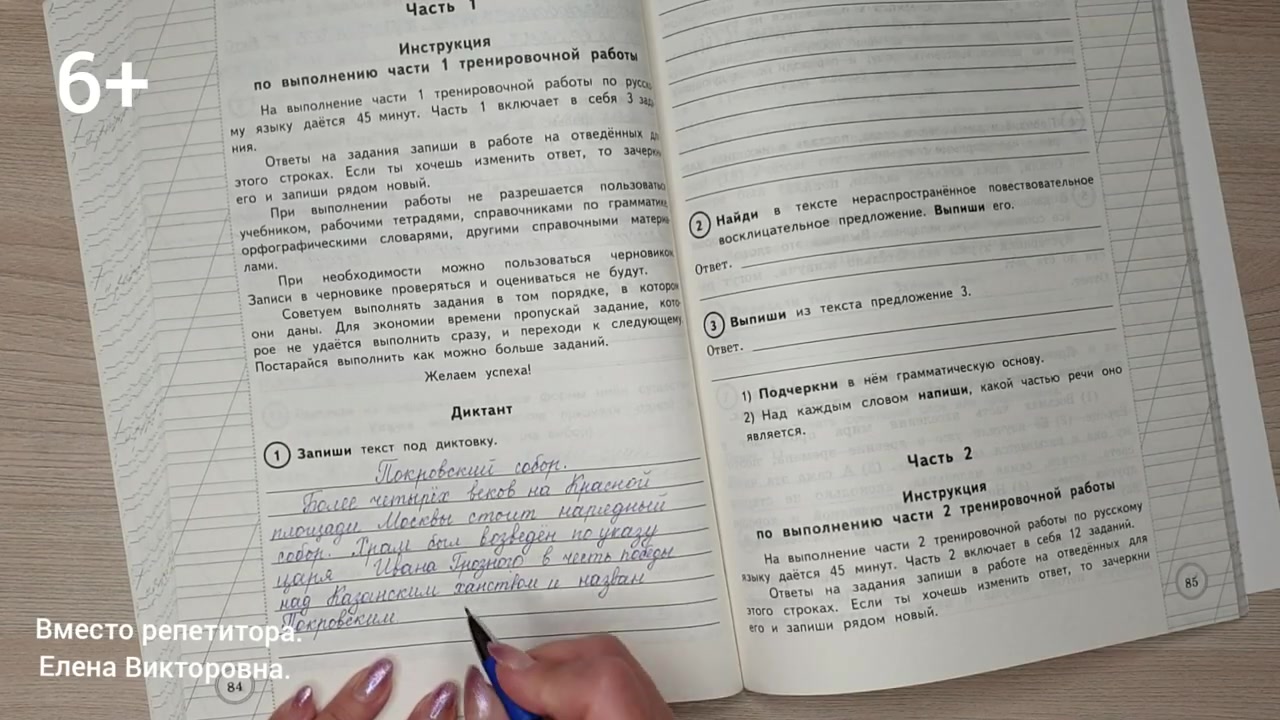 6+
Часть 1
Инструкция
по выполнению части 1 тренировочной работы
На выполнение части 1 тренировочной работы по русско
му языку даётся 45 минут. Часть 1 включает в себя 3 зада
ния.
Ответы на задания запиши в работе на отведённых дл
этого строках. Если ты хочешь изменить ответ, то зачеркн
его и запиши рядом новый.
При выполнении работы не разрешается пользоватьс
учебником, рабочими тетрадями, справочниками по грамматике,
орфографическими словарями, другими справочными матери
лами.
При необходимости можно пользоваться черновиком.
Записи в черновике проверяться и оцениваться не будут.
Советуем выполнять задания в том порядке, в котором
они даны. Для экономии времени пропускай задание, кото-
рое не удаётся выполнить сразу, и переходи к следующему.
Постарайся выполнить как можно больше заданий.
Желаем успеха!
Диктант
1 Запиши текст под диктовку.
Покровский собор.
Более четырёх веков на Красной
площади Москвы стоит нарядный
собор. Храм был возведён по указу
царя Ивана Грозного в честь победы
над Казанским ханством и назван
Покровским
84
2 Найди в тексте нераспространённое повествовательное
восклицательное предложение. Выпиши его.
Ответ.
3 Выпиши из текста предложение 3.
Ответ.
1) Подчеркни в нём грамматическую основу.
2) Над каждым словом напиши, какой частью речи оно
является.
Часть 2
Инструкция
по выполнению части 2 тренировочной работы
На выполнение части 2 тренировочной работы по русскому
языку даётся 45 минут. Часть 2 включает в себя 12 заданий.
Ответы на задания запиши в работе на отведённых для
этого строках. Если ты хочешь изменить ответ, то зачеркни
его и запиши рядом новый.
85
Вместо репетитора.
Елена Викторовна.